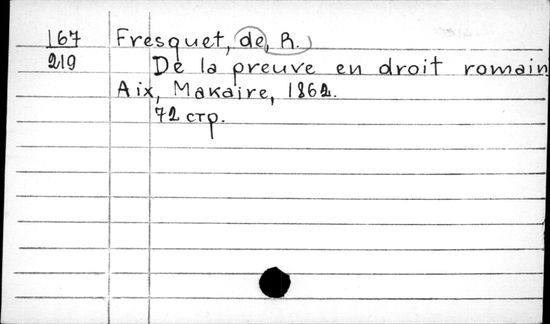 167 Fresquet, de, R.
219 De la preuve en droit romain
Aix, Makaire, 1862.
72 стр.